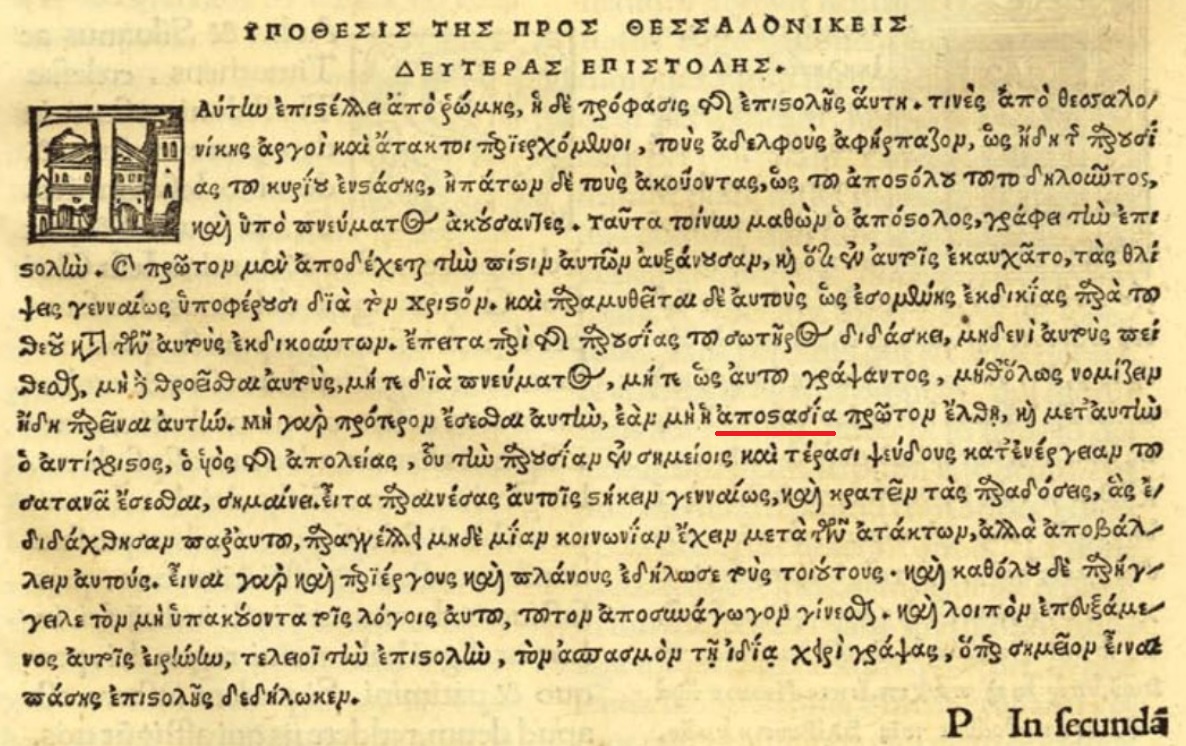 ΥΠΟΘΕΣΙΣ ΤΗΣ ΠΡΟΣ ΘΕΣΣΑΛΟΝΙΚΕΙΣ
ΔΕΥΤΕΡΑΣ ΕΠΙΣΤΟΛΗΣ.
ΤΑύτἰω ἐπιϛέλλει ἀπὸ ῥώμης, ἡ δὲ πρόφασις τῆς ἐπιϛολῆς ἅυτη. τινὲς ἀπὸ θεσσαλο/
νίκης ἀργοὶ καὶ ἄτακτοι περιερχόμενοι, τοὺς ἀδελφοὺς ἀφήρπαζον, ὡς ἤδη τ παρουσί
ας τοῦ κυρίου ἐνϛάσης, ἠπάτων δὲ τοὺς ἀκούοντας, ὡς τοῦ ἀποϛόλου τοῦτο δηλοῦντος,
καὶ ὑπὸ πνεύματος ἀκούσαντες. ταῦτα τοίνυν μαθὼν ὁ ἀπόϛολος, γράφει τὴν ἐπι
ϛολὴν. Ὁ πρῶτον μὲν ἀποδέχεται τὴν πίϛιν ἀυτῶν ἀυξάνουσαν, καὶ ὅτι ἐν ἀυτοῖς ἐκαυχᾶτο, τὰς θλί
ψεις γενναίως ὑποφέρουσι διὰ τὸν χριϛόν. καὶ παραμυθεῖται δὲ ἀυτοὺς ὡς ἐσομένης ἐκδικίας παρὰ τοῦ
θεοῦ κατὰ τῶν ἀυτοὺς ἐκδικούντων. ἔπειτα περὶ τῆς παρουσίας τοῦ σωτῆρος διδάσκει, μηδενὶ ἀυτοὺς πεί
θεσθαι, μὴ δὲ θροεῖσθαι ἀυτοὺς, μή τε διὰ πνεύματος, μή τε ὡς ἀυτοῦ γράψαντος, μηθόλως νομίζειν
ἤδη παρεῖναι ἀυτήν. μὴ γὰρ πρότερον ἔσεσθαι ἀυτὴν, ἐὰν μὴ ἡ ἀποϛασία πρῶτον ἔλθῃ, καὶ μετ' ἀυτὴν
ὁ ἀντίχριϛος, ὁ ὑιὸς τῆς ἀπολείας, οὗ τὴν παρουσίαν ἐν σημείοις καὶ τέρασι ψεύδους κατ' ἐνέργειαν τοῦ
σατανᾶ ἔσεσθαι, σημαίνει. εἶτα παραινέσας ἀυτοῖς ϛήκειν γενναίως, καὶ κρατεῖν τὰς παραδόσεις, ἃς ἐ/
διδάχθησαν παρ' ἀυτοῦ, παραγγέλλει μηδὲ μίαν κοινωνίαν ἔχειν μετὰ τῶν ἀτάκτων, ἀλλὰ ἀποβάλ/
λειν ἀυτούς. εἶναι γὰρ καὶ περιέργους καὶ πλάνους ἐδήλωσε τοὺς τοιούτους. καὶ καθόλου δὲ παρήγ/
γειλε τὸν μὴ ὑπακούοντα τοῖς λόγοις ἀυτοῦ, τοῦτον ἀποσυνάγωγον γίνεσθαι. καὶ λοιπὸν ἐπευξάμε/
νος ἀυτοῖς εἰρήνην, τελειοῖ τὴν ἐπιϛολὴν, τὸν ἀσπασμὸν τῇ ἰδίᾳ χειρὶ γράψας, ὅπερ σημεῖον εἶναι
πάσης ἐπιϛολῆς δεδήλωκεν.
P In secundā